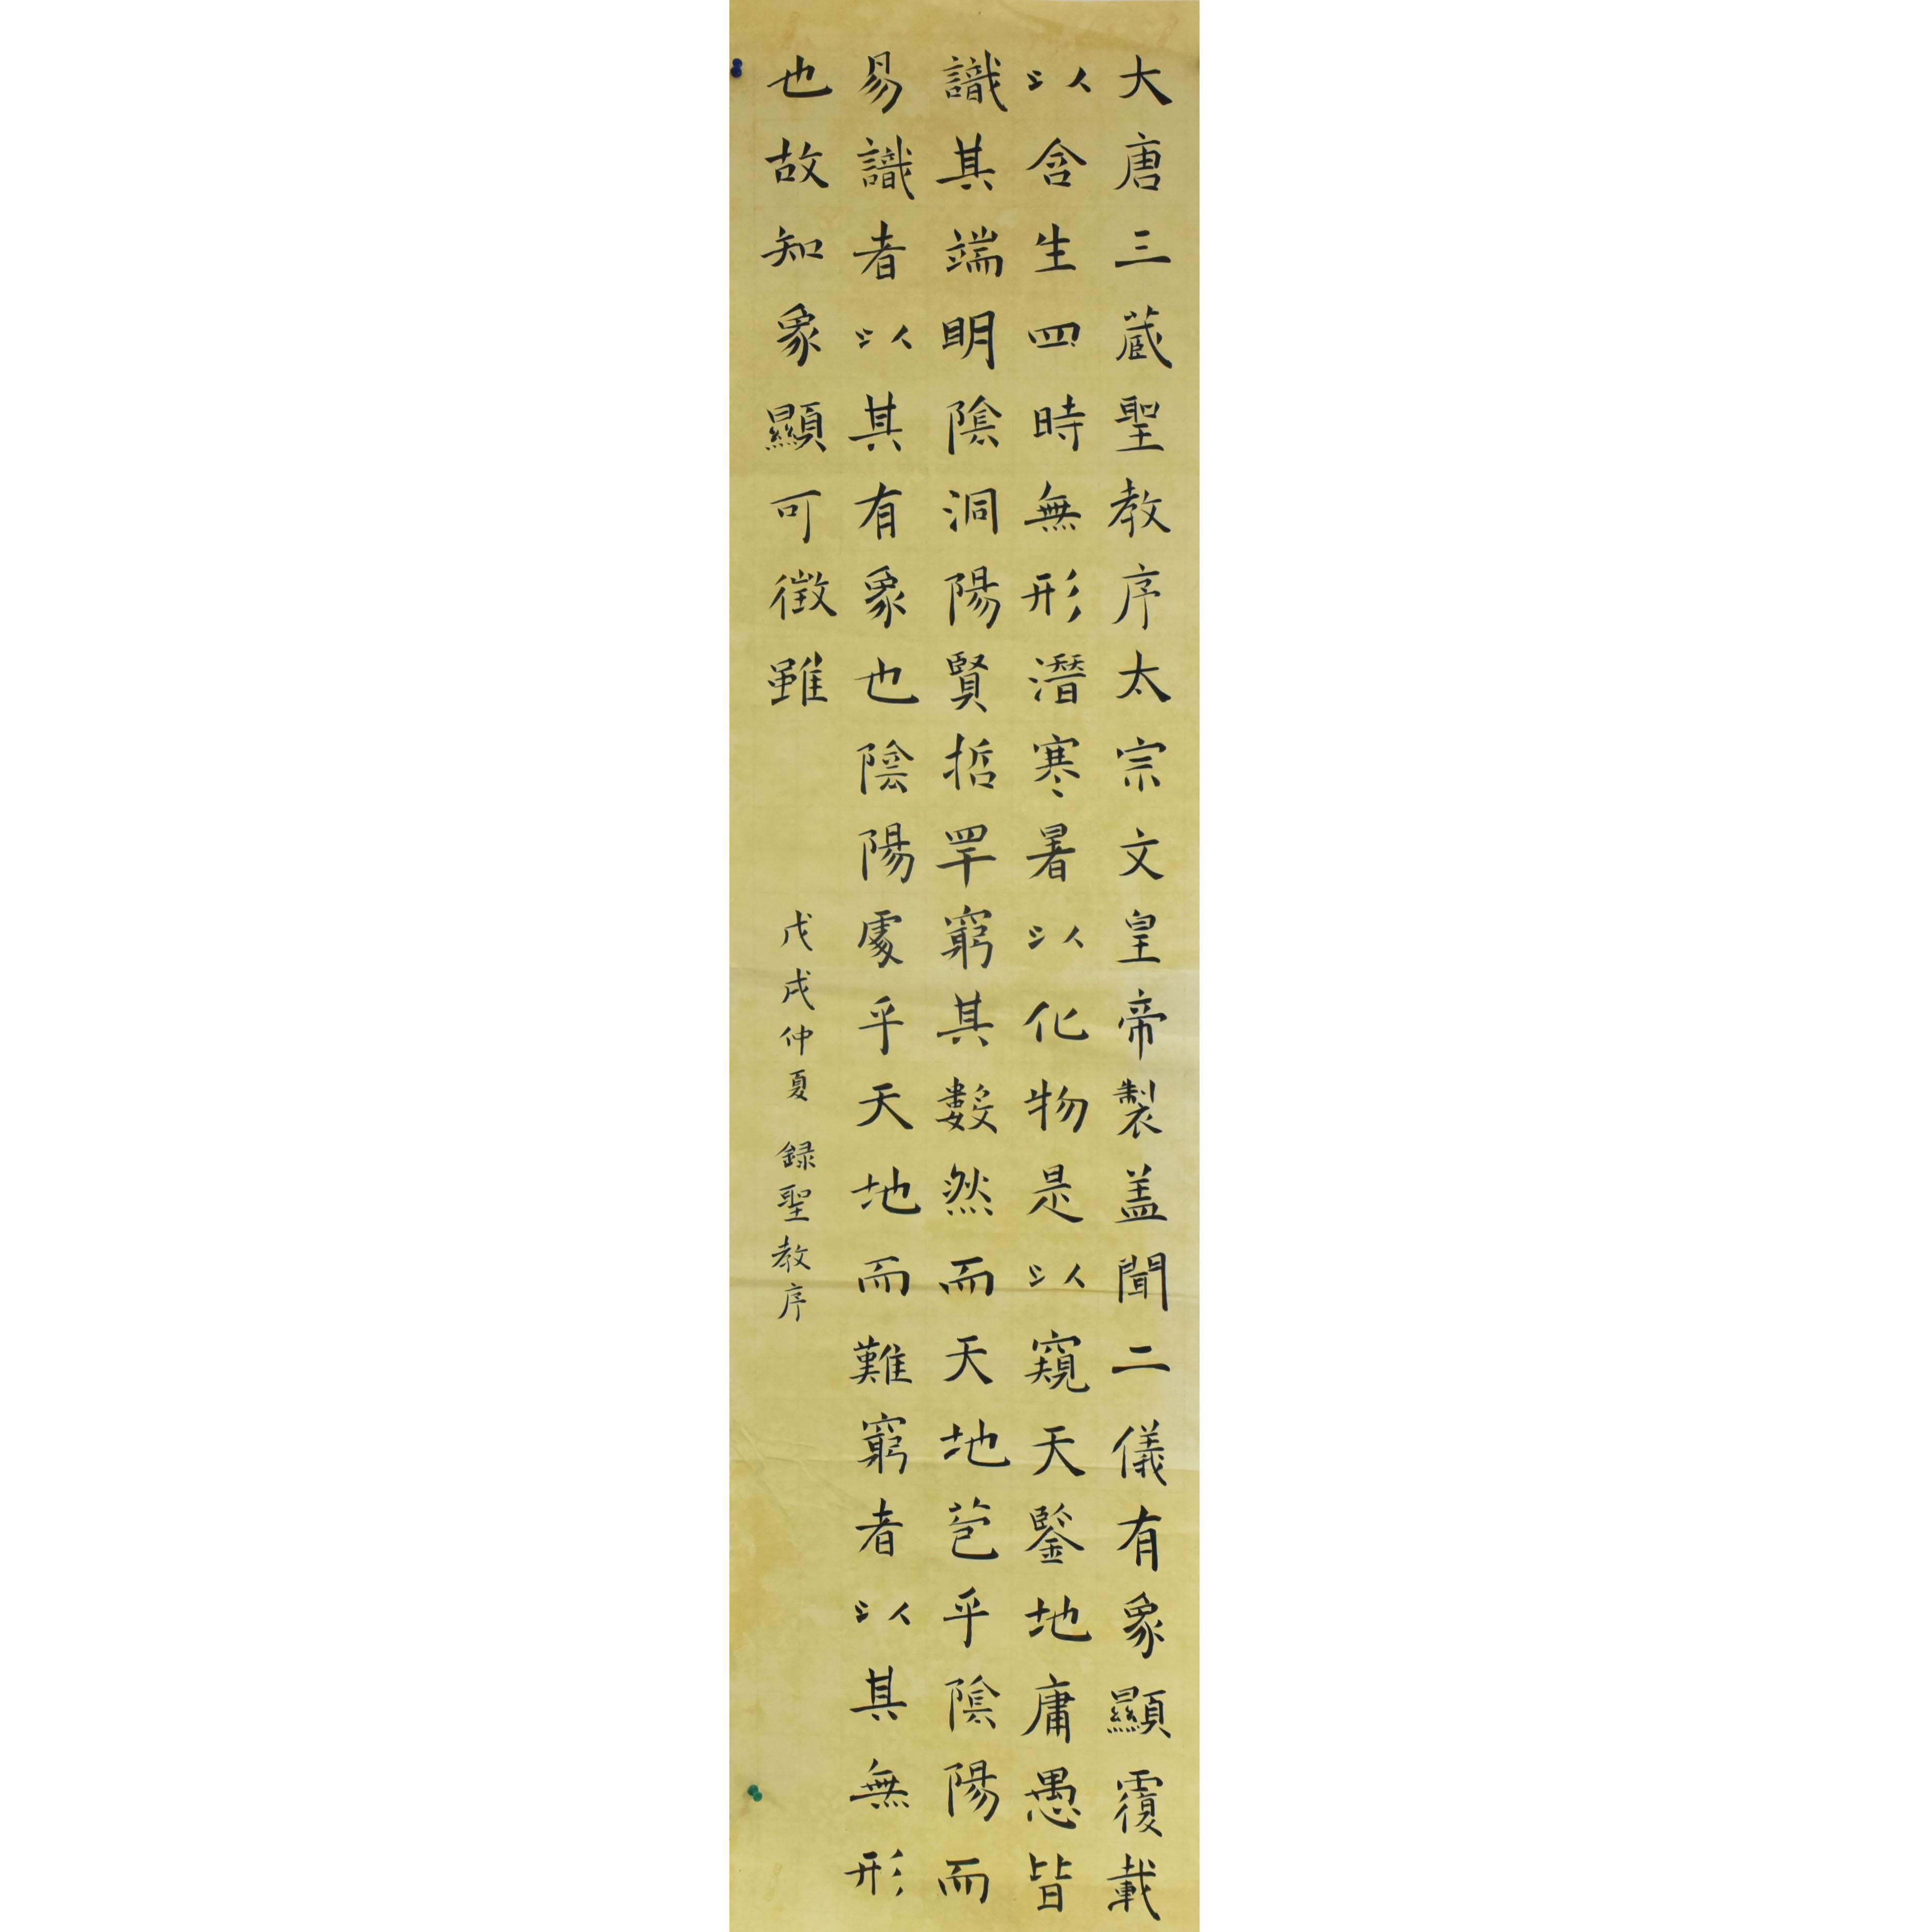 大唐三蔵聖教序太宗文皇帝製盖聞二儀有象顯覆載
以含生四時無形潛寒暑以化物是以窺天鑒地庸愚皆
識其端明陰洞陽賢哲罕窮其數然而天地苞乎陰陽而
易識者以其有象也陰陽處乎天地而難窮者以其無形
也故知象顯可徵雖
戊戌仲夏 録聖教序